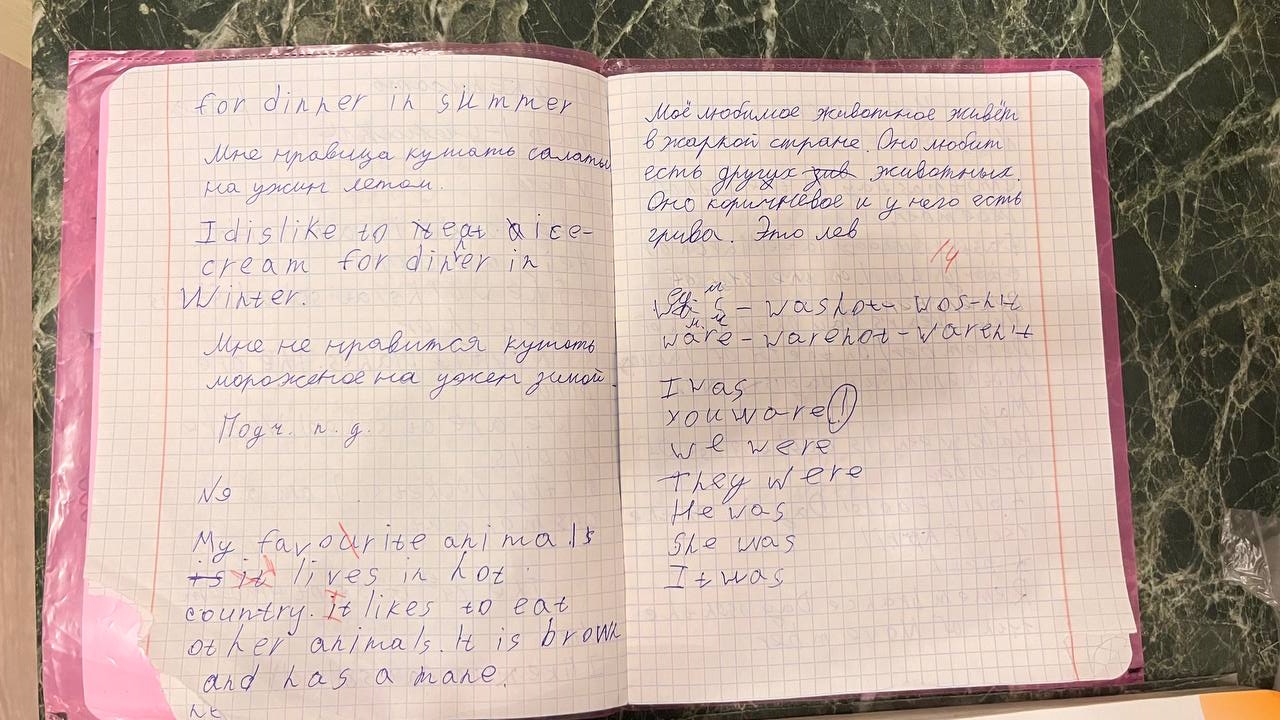 for dinner in summer
Мне нравица кушать салаты
на ужин летом.
I dislike to eat ice-
cream for dinner in
Winter.
Мне не нравится кушать
мороженое на ужен зимой.
Подч. п. д.
N9
My favourite animals
is it lives in hot
country. It likes to eat
other animals. It is brown
and has a mane.
Моё любимое животное живёт
в жаркой стране. Оно любит
есть других животных.
Оно коричневое и у него есть
грива. Это лев
14
– was not – was-nt
ware – ware not – waren't
I was
you ware!
we were
They were
He was
She was
It was